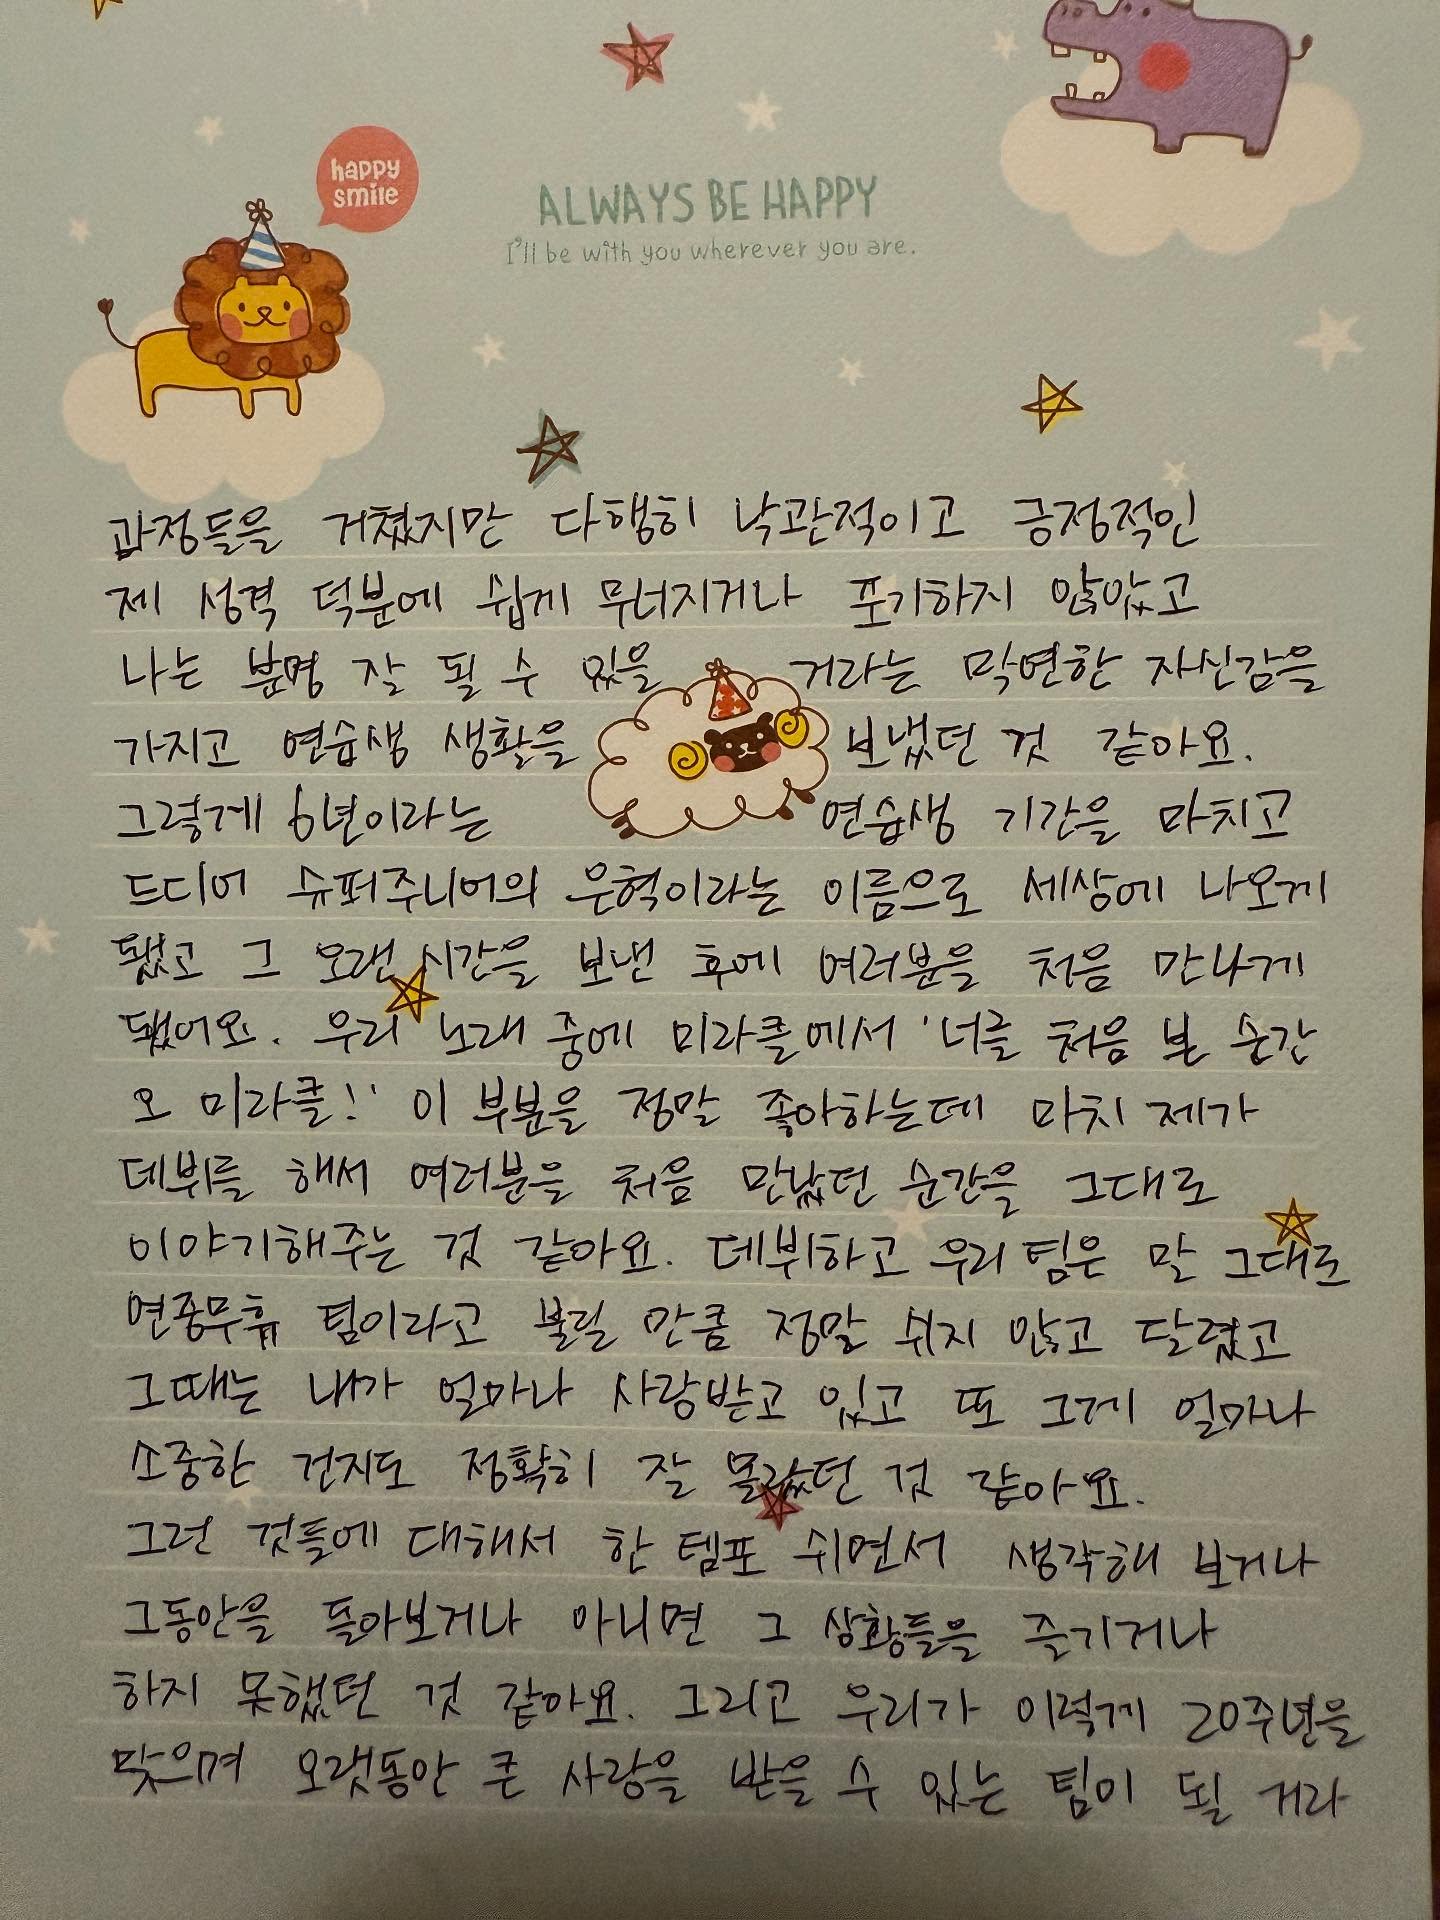 happy
smile
ALWAYS BE HAPPY
I'll be with you wherever you are.
과정들을 거쳤지만 다행히 낙관적이고 긍정적인
제 성격 덕분에 쉽게 무너지거나 포기하지 않았고
나는 분명 잘 될 수 있을 거라는 막연한 자신감을
가지고 연습생 생활을 보냈던 것 같아요.
그렇게 6년이라는 연습생 기간을 마치고
드디어 슈퍼주니어의 은혁이라는 이름으로 세상에 나오게
됐고 그 오랜 시간을 보낸 후에 여러분을 처음 만나게
됐어요. 우리 노래 중에 미라클에서 '너를 처음 본 순간
오 미라클!' 이 부분을 정말 좋아하는데 마치 제가
데뷔를 해서 여러분을 처음 만났던 순간을 그대로
이야기해주는 것 같아요. 데뷔하고 우리 팀은 말 그대로
연중무휴 팀이라고 불릴 만큼 정말 쉬지 않고 달렸고
그때는 내가 얼마나 사랑받고 있고 또 그게 얼마나
소중한 건지도 정확히 잘 몰랐던 것 같아요.
그런 것들에 대해서 한 템포 쉬면서 생각해 보거나
그동안을 돌아보거나 아니면 그 상황들을 즐기거나
하지 못했던 것 같아요. 그리고 우리가 이렇게 20주년을
맞으며 오랫동안 큰 사랑을 받을 수 있는 팀이 될 거라